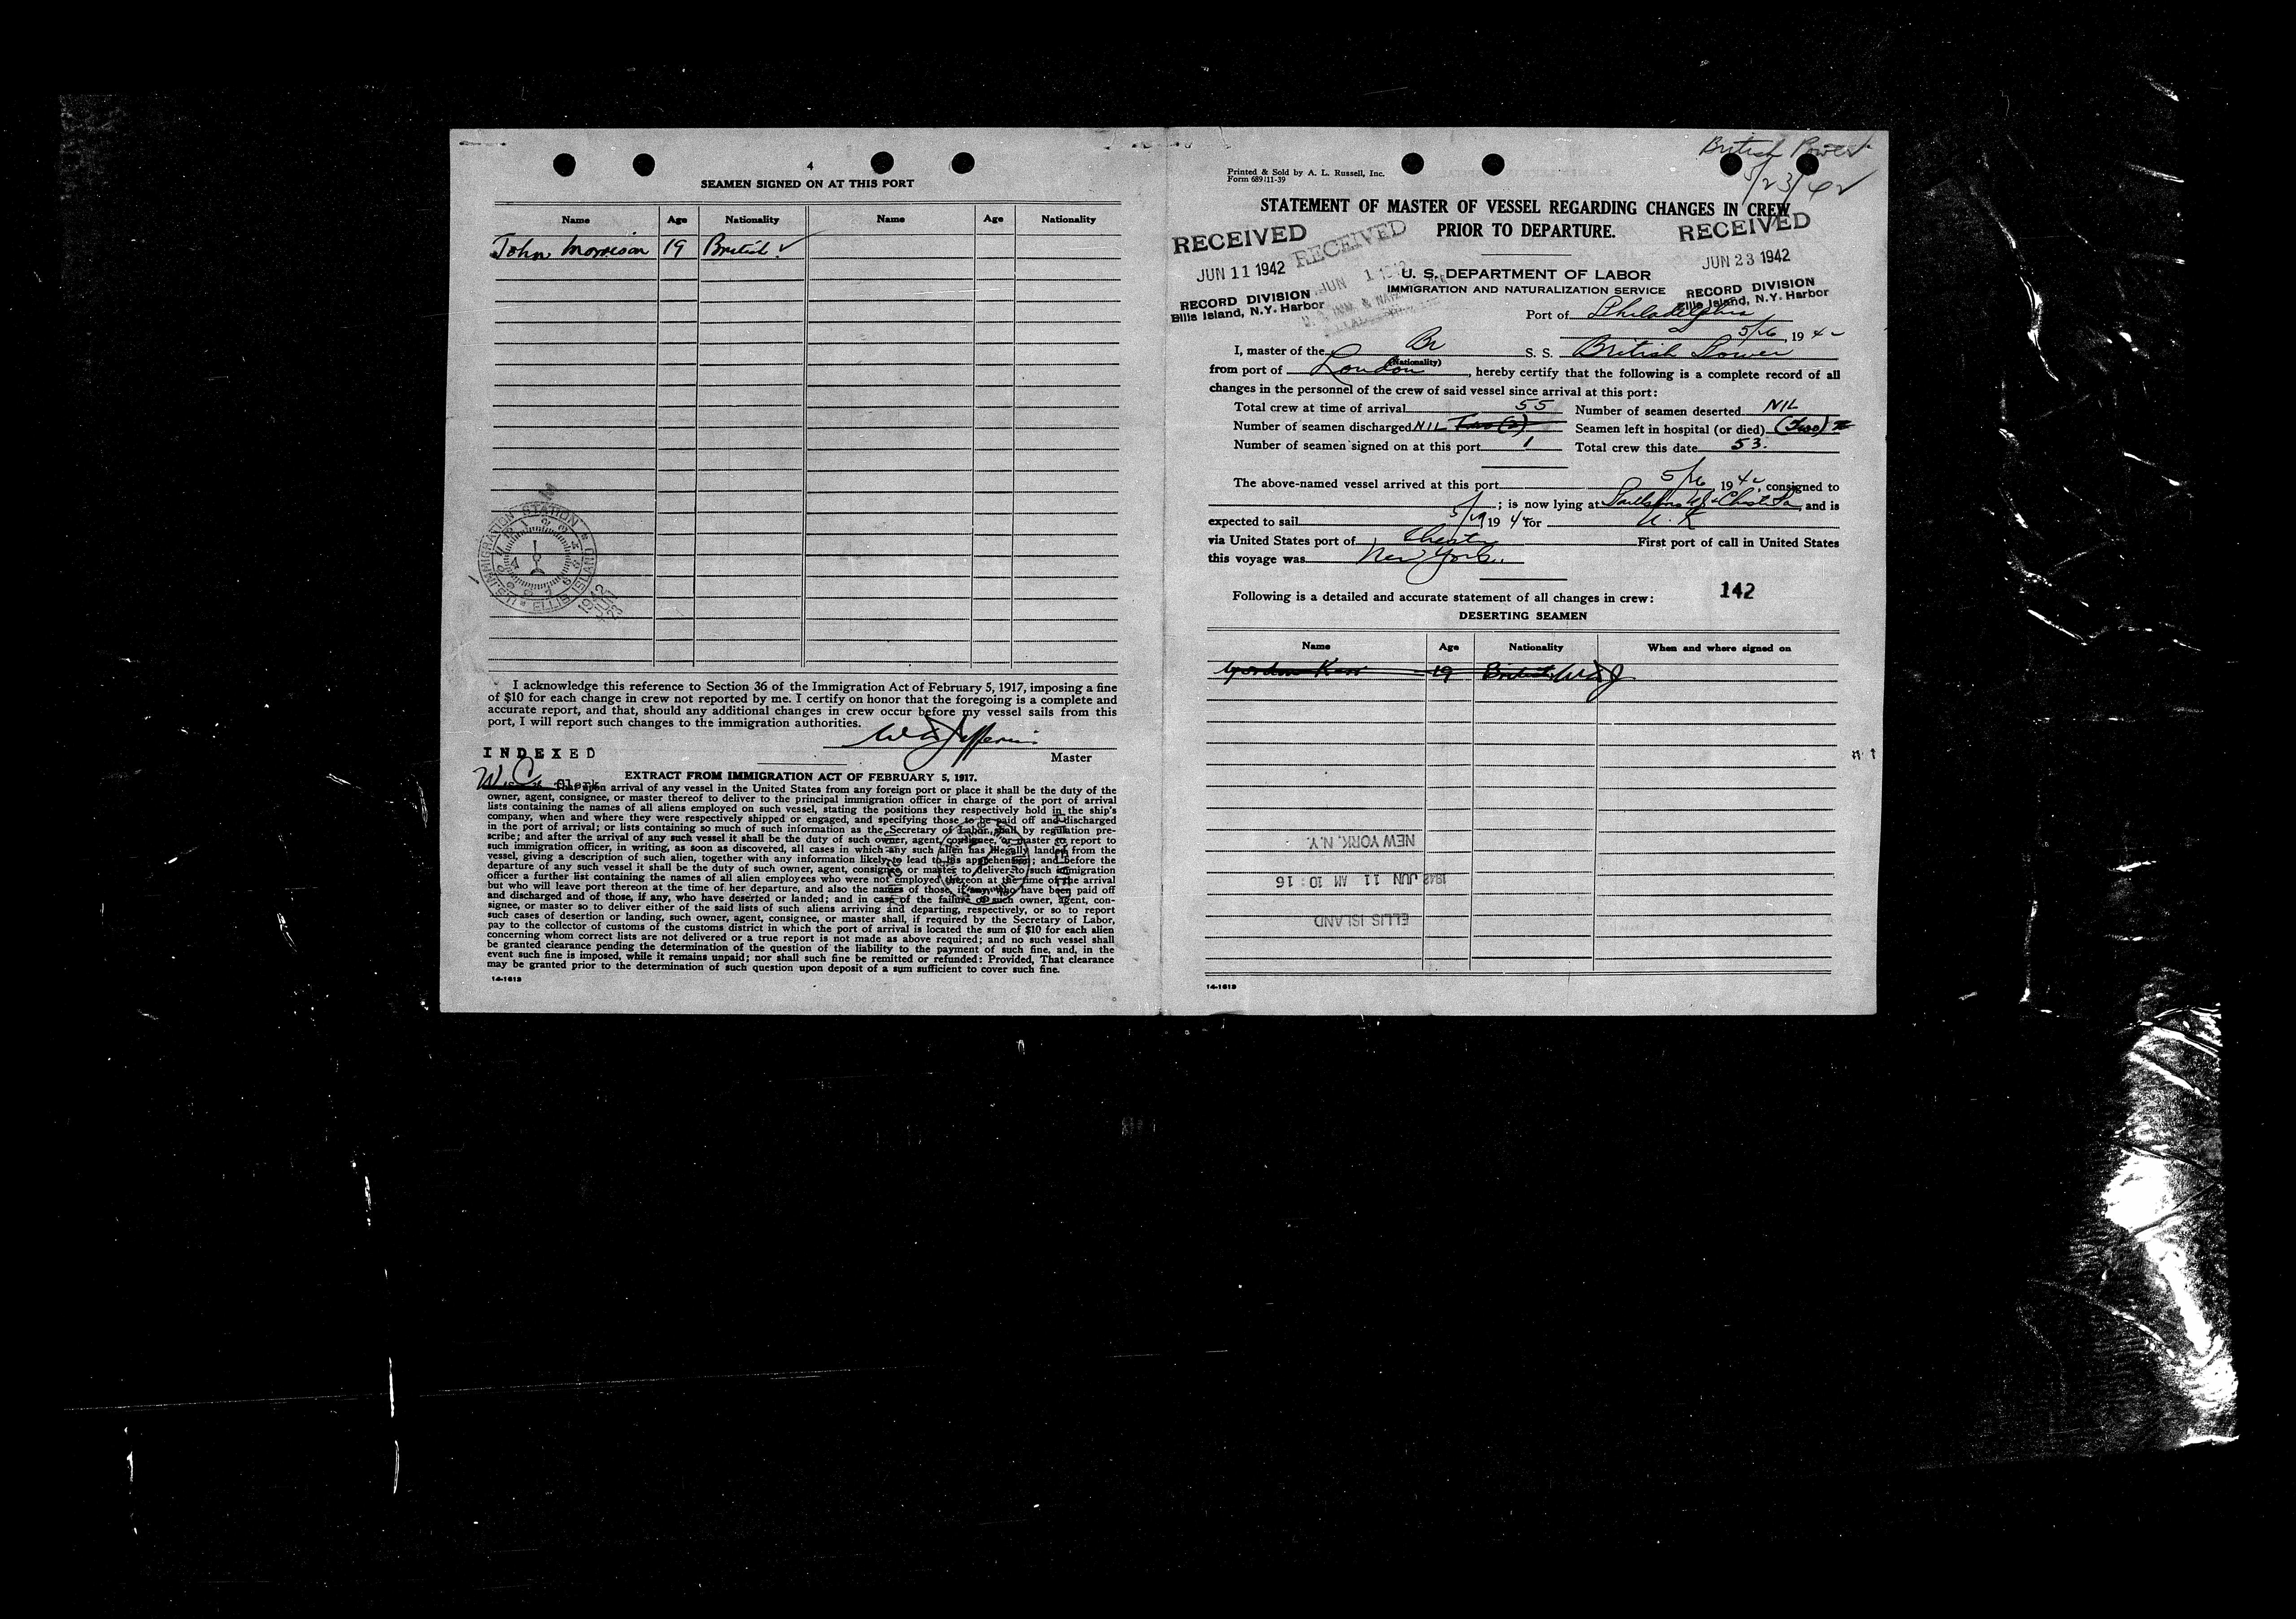 4
SEAMEN SIGNED ON AT THIS PORT
Name Age Nationality Name Age Nationality
John Morrison 19 British ✓
U.S. IMMIGRATION STATION ELLIS ISLAND
1942
I acknowledge this reference to Section 36 of the Immigration Act of February 5, 1917, imposing a fine
of $10 for each change in crew not reported by me. I certify on honor that the foregoing is a complete and
accurate report, and that, should any additional changes in crew occur before my vessel sails from this
port, I will report such changes to the immigration authorities.
Master
INDEXED
Clerk
EXTRACT FROM IMMIGRATION ACT OF FEBRUARY 5, 1917.
That upon arrival of any vessel in the United States from any foreign port or place it shall be the duty of the
owner, agent, consignee, or master thereof to deliver to the principal immigration officer in charge of the port of arrival
lists containing the names of all aliens employed on such vessel, stating the positions they respectively hold in the ship's
company, when and where they were respectively shipped or engaged, and specifying those to be paid off and discharged
in the port of arrival; or lists containing so much of such information as the Secretary of Labor shall by regulation pre-
scribe; and after the arrival of any such vessel it shall be the duty of such owner, agent, consignee, or master to report to
such immigration officer, in writing, as soon as discovered, all cases in which any such alien has illegally landed from the
vessel, giving a description of such alien, together with any information likely to lead to his apprehension; and before the
departure of any such vessel it shall be the duty of such owner, agent, consignee, or master to deliver to such immigration
officer a further list containing the names of all alien employees who were not employed thereon at the time of the arrival
but who will leave port thereon at the time of her departure, and also the names of those, if any, who have been paid off
and discharged and of those, if any, who have deserted or landed; and in case of the failure of such owner, agent, con-
signee, or master so to deliver either of the said lists of such aliens arriving and departing, respectively, or so to report
such cases of desertion or landing, such owner, agent, consignee, or master shall, if required by the Secretary of Labor,
pay to the collector of customs of the customs district in which the port of arrival is located the sum of $10 for each alien
concerning whom correct lists are not delivered or a true report is not made as above required; and no such vessel shall
be granted clearance pending the determination of the question of the liability to the payment of such fine, and, in the
event such fine is imposed, while it remains unpaid; nor shall such fine be remitted or refunded: Provided, That clearance
may be granted prior to the determination of such question upon deposit of a sum sufficient to cover such fine.
14-1613
British Power
5/23/42
Printed & Sold by A. L. Russell, Inc.
Form 689/11-39
STATEMENT OF MASTER OF VESSEL REGARDING CHANGES IN CREW
PRIOR TO DEPARTURE.
RECEIVED
JUN 11 1942
RECORD DIVISION
Ellis Island, N.Y. Harbor
RECEIVED
RECEIVED
JUN 23 1942
RECORD DIVISION
Ellis Island, N.Y. Harbor
U. S. DEPARTMENT OF LABOR
IMMIGRATION AND NATURALIZATION SERVICE
Port of Philadelphia
5/26, 19 42
I, master of the Br S. S. British Power
(Nationality)
from port of London, hereby certify that the following is a complete record of all
changes in the personnel of the crew of said vessel since arrival at this port:
Total crew at time of arrival 55 Number of seamen deserted NIL
Number of seamen discharged NIL Two (2) Seamen left in hospital (or died) (Two)
Number of seamen signed on at this port 1 Total crew this date 53.
The above-named vessel arrived at this port 5/26 1942, consigned to
; is now lying at and is
expected to sail 5/29 1942 for U. K
via United States port of Chester First port of call in United States
this voyage was New York.
Following is a detailed and accurate statement of all changes in crew: 142
DESERTING SEAMEN
Name Age Nationality When and where signed on
Gordon Kerr 19 British
NEW YORK, N.Y.
1942 JUN 11 AM 10:16
ELLIS ISLAND
14-1613